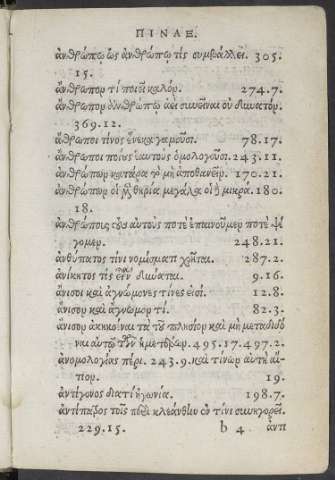 ΠΙΝΑΞ.
ἀνθρώπῳ ὡς ἀνθρώπῳ τίς συμβάλλει. 305.
15.
ἄνθρωπον τί ποιεῖ καλόν. 274.7.
ἄνθρωπον ἀνθρώπῳ ἀεὶ συνεῖναι οὐ δυνατόν.
369.12.
ἄνθρωποι τίνος ἕνεκα γαμοῦσι. 78.17.
ἄνθρωποι ποίους ἑαυτοὺς ὁμολογοῦσι. 243.11.
ἀνθρώπων κατάρα τὸ μὴ ἀποθανεῖν. 170.21.
ἀνθρώπων οἱ μὲν θηρία μεγάλα οἱ δὲ μικρά. 180.
18.
ἀνθρώπους τοὺς αὐτοὺς ποτὲ ἐπαινοῦμεν ποτὲ ψέ
γομεν. 248.21.
ἀνθύπατος τίνι νομίσματι χρῆται. 287.2.
ἀνίκητος τίς εἶναι δύναται. 9.16.
ἄνισοι καὶ ἀγνώμονες τίνες εἰσί. 12.8.
ἄνισον καὶ ἀγνώμον τί. 82.3.
ἄνισον τὰ τοῦ πλησίον καὶ μὴ μεταδιδό
ναι αὐτῷ τῶν ἡμετέρων. 495.17.497.2.
ἀνομολογίας πέρι. 243.9. καὶ τίνων αὕτη αἴ-
τιον. 19.
ἀντίγονος διατί ἠγωνία. 198.7.
ἀντίπαβος τοῖς περὶ κλεάνθην οὔ τινι συνηγορεῖ.
229.15. b 4 ἀντι